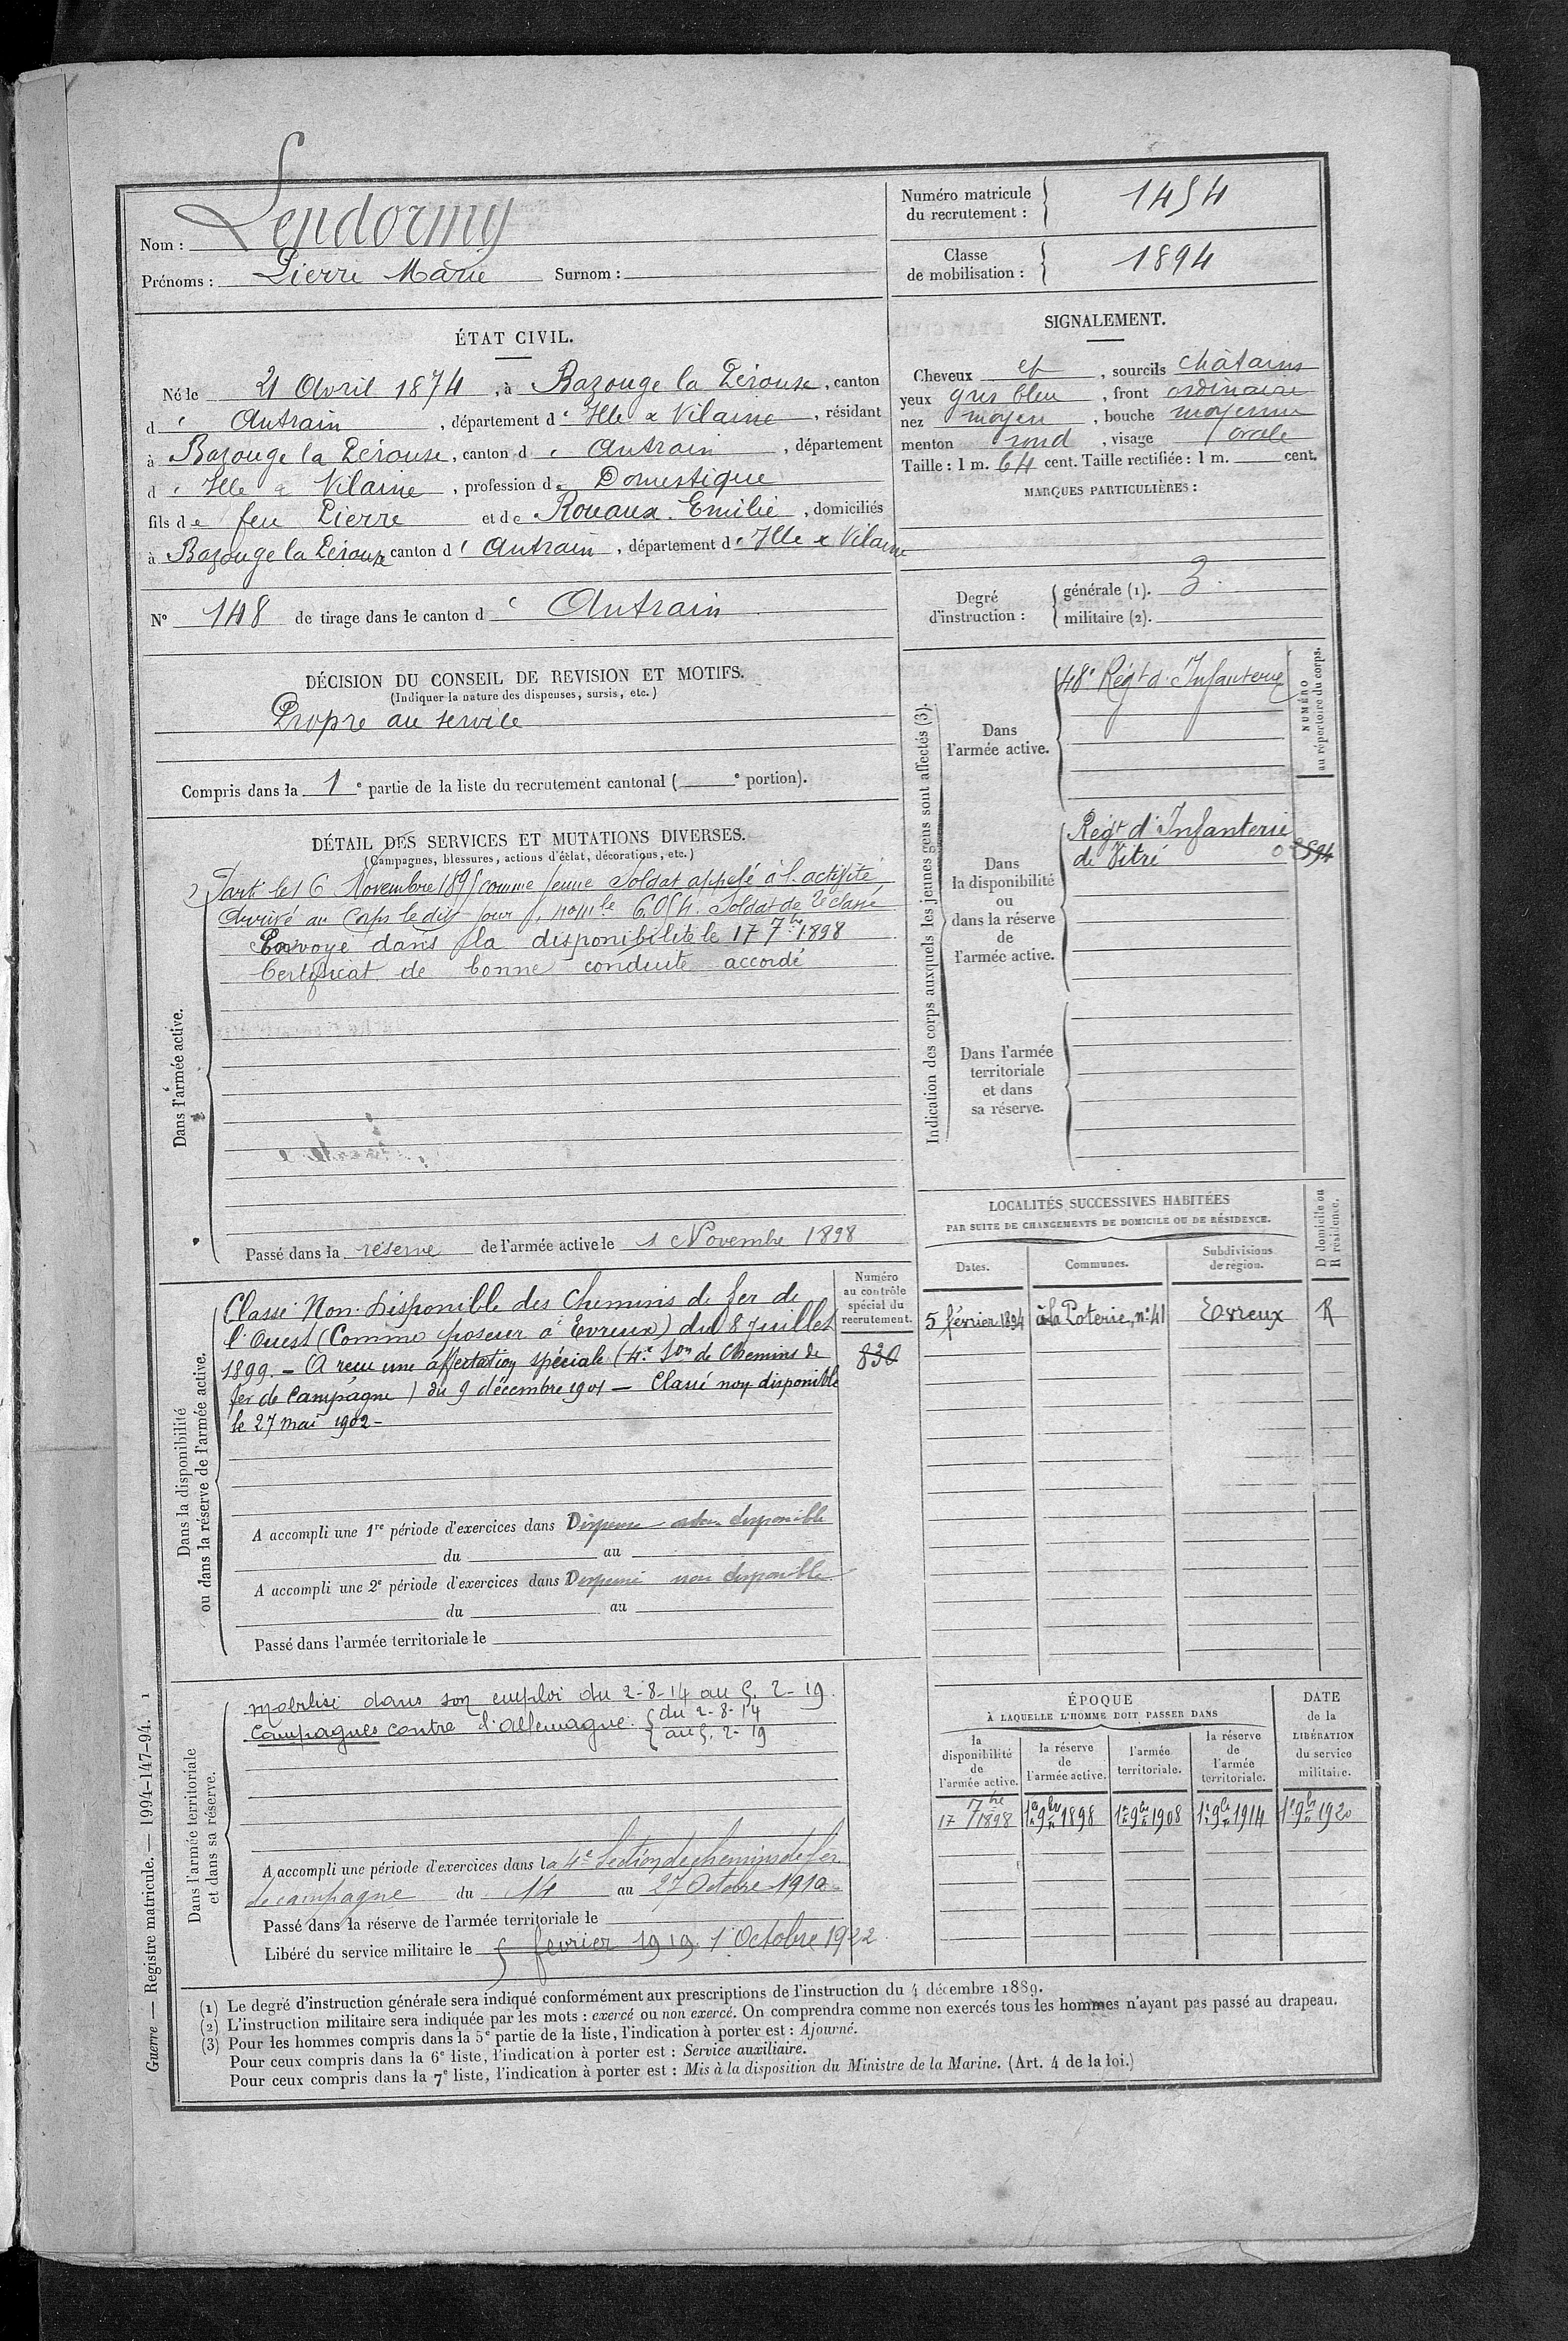 Nom : Lendormy
Prénoms : Pierre Marie Surnom :
Numéro matricule du recrutement : 1454
Classe de mobilisation : 1894
ÉTAT CIVIL.
Né le 21 Avril 1874, à Bazouge la Pérouse, canton
d' Antrain, département d' Ille & Vilaine, résidant
à Bazouge la Pérouse, canton d' Antrain, département
d' Ille & Vilaine, profession de Domestique
fils de feu Pierre et de Rouaux Emilie, domiciliés
à Bazouge la Pérouse canton d' Antrain, département d' Ille & Vilaine
N° 148 de tirage dans le canton d' Antrain
SIGNALEMENT.
Cheveux et, sourcils châtains
yeux gris bleu, front ordinaire
nez moyen, bouche moyenne
menton rond, visage ovale
Taille : 1 m. 64 cent. Taille rectifiée : 1 m. cent.
MARQUES PARTICULIÈRES :
Degré d'instruction : générale (1). 3.
militaire (2).
DÉCISION DU CONSEIL DE REVISION ET MOTIFS.
(Indiquer la nature des dispenses, sursis, etc.)
Propre au service
Compris dans la 1e partie de la liste du recrutement cantonal ( e portion).
Indication des corps auxquels les jeunes gens sont affectés (3).
NUMÉRO au répertoire du corps.
Dans l'armée active.
48e Régt d'Infanterie
Dans la disponibilité ou dans la réserve de l'armée active.
Régt d'Infanterie
de Vitré
Dans l'armée territoriale et dans sa réserve.
DÉTAIL DES SERVICES ET MUTATIONS DIVERSES.
(Campagnes, blessures, actions d'éclat, décorations, etc.)
Dans l'armée active.
Parti le 16 Novembre 1895 comme jeune Soldat appelé à l'activité
Arrivé au Corps le dit jour Soldat de 2e classe
Envoyé dans la disponibilité le 17 7bre 1898
Certificat de bonne conduite accordé
Passé dans la réserve de l'armée active le 1 Novembre 1898
LOCALITÉS SUCCESSIVES HABITÉES
PAR SUITE DE CHANGEMENTS DE DOMICILE OU DE RÉSIDENCE.
Dates. Communes. Subdivisions de région. D domicile ou R résidence.
5 février 1894 à la Poterie, n° 41 Evreux R
Dans la disponibilité ou dans la réserve de l'armée active.
Numéro au contrôle spécial du recrutement.
830
Classé Non-Disponible des Chemins de fer de
l'Ouest (Comme poseur à Evreux) du 8 Juillet
1899. – A reçu une affectation spéciale (4e Son de Chemins de
fer de Campagne) du 9 décembre 1901 – Classé non disponible
le 27 mai 1902 –
A accompli une 1re période d'exercices dans Dispensé non disponible
du au
A accompli une 2e période d'exercices dans Dispensé non disponible
du au
Passé dans l'armée territoriale le
Dans l'armée territoriale et dans sa réserve.
Mobilisé dans son emploi du 2-8-14 au 5-2-19.
Campagnes contre l'Allemagne. du 2-8-14
au 5-2-19
A accompli une période d'exercices dans la 4e Section de chemins de fer
de campagne du 14 au 27 Octobre 1910
Passé dans la réserve de l'armée territoriale le
Libéré du service militaire le 5 février 1919. 1 Octobre 1922
ÉPOQUE
À LAQUELLE L'HOMME DOIT PASSER DANS
la disponibilité de l'armée active. la réserve de l'armée active. l'armée territoriale. la réserve de l'armée territoriale. DATE de la LIBÉRATION du service militaire.
17 7bre 1898 1er 9bre 1898 1er 9bre 1908 1er 9bre 1914 1er 9bre 1920
(1) Le degré d'instruction générale sera indiqué conformément aux prescriptions de l'instruction du 4 décembre 1889.
(2) L'instruction militaire sera indiquée par les mots : exercé ou non exercé. On comprendra comme non exercés tous les hommes n'ayant pas passé au drapeau.
(3) Pour les hommes compris dans la 5e partie de la liste, l'indication à porter est : Ajourné.
Pour ceux compris dans la 6e liste, l'indication à porter est : Service auxiliaire.
Pour ceux compris dans la 7e liste, l'indication à porter est : Mis à la disposition du Ministre de la Marine. (Art. 4 de la loi.)
Guerre — Registre matricule. — 1994-147-94. 1